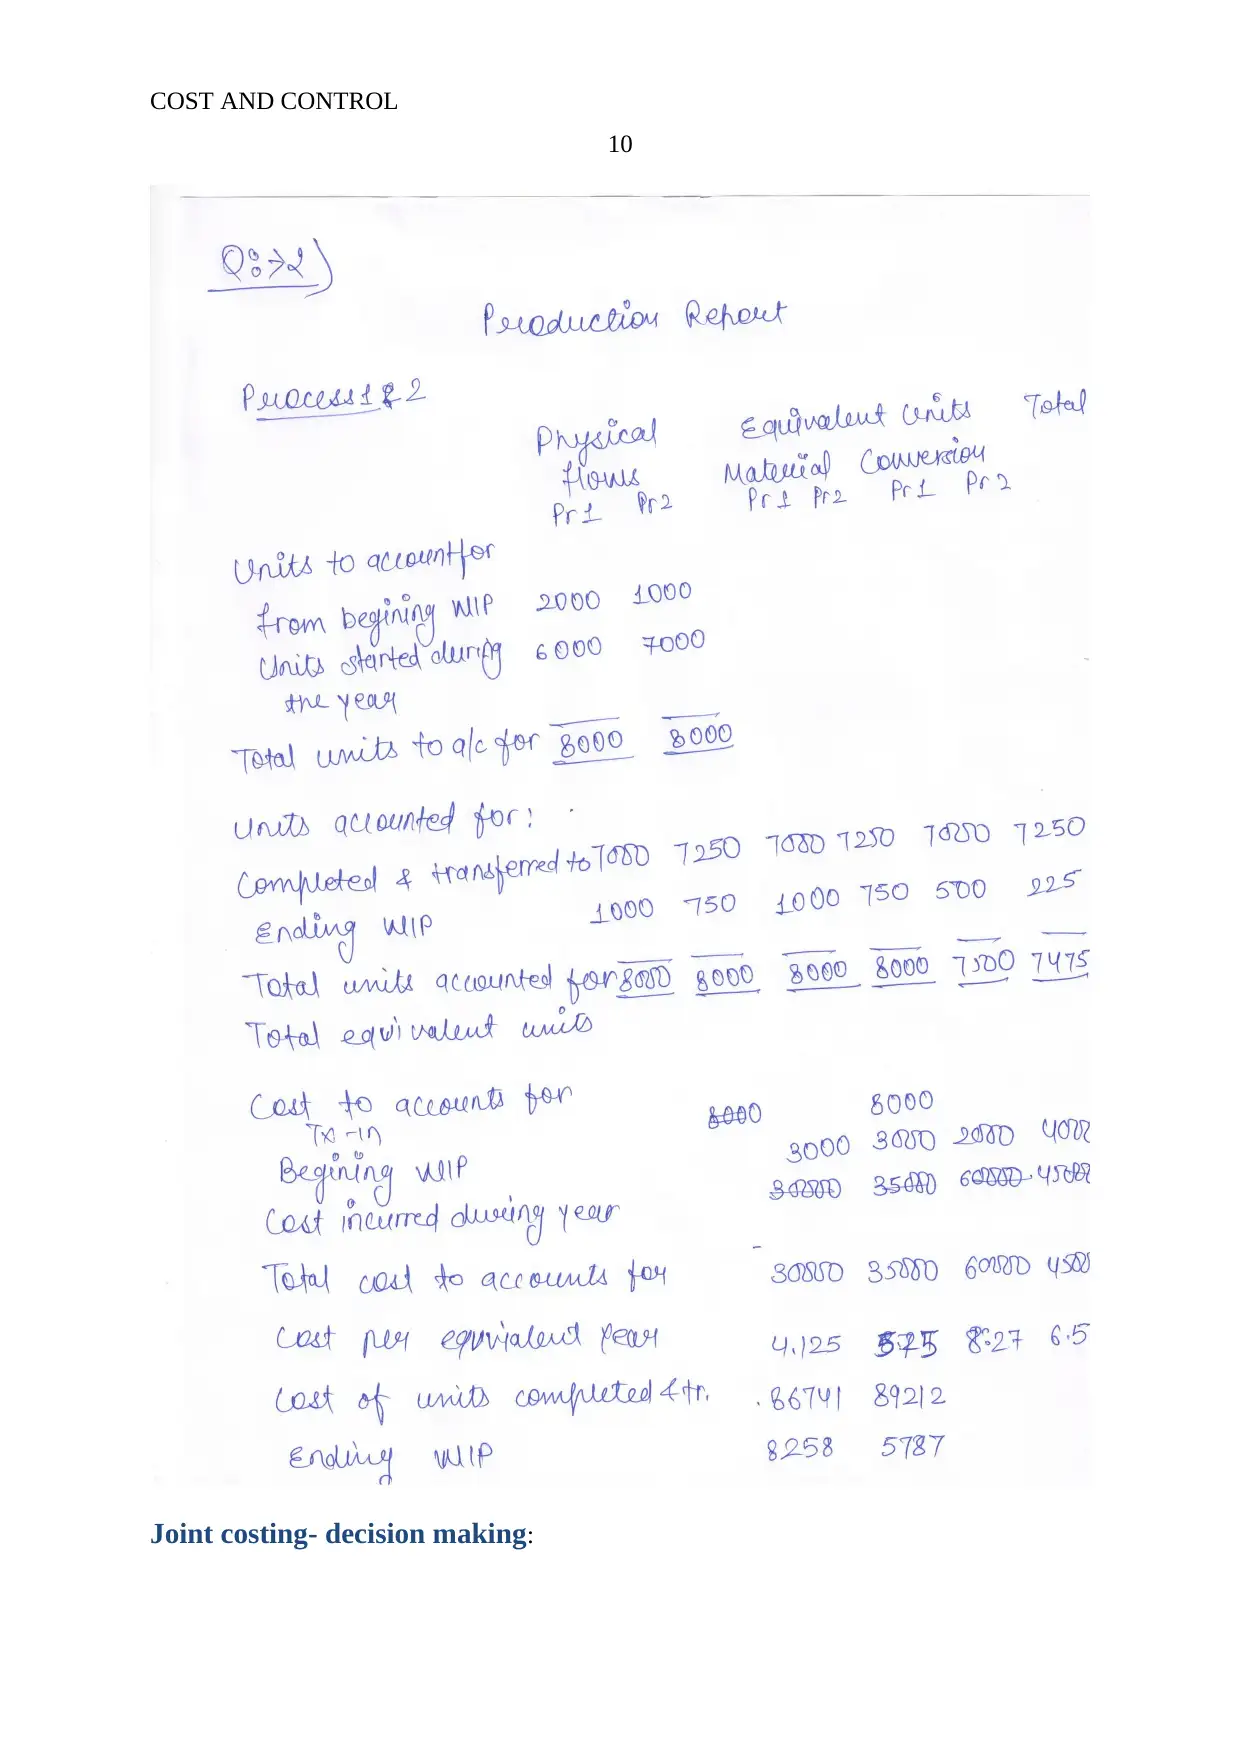 COST AND CONTROL
10
Q:→2)
Production Report
Process 1 & 2
Physical Equivalent Units Total
flows Material Conversion
Pr 1 Pr 2 Pr 1 Pr 2 Pr 1 Pr 2
Units to account for
from begining WIP 2000 1000
Units started during 6000 7000
the year
Total units to a/c for 8000 8000
Units accounted for:
Completed & transferred to 7000 7250 7000 7250 7000 7250
Ending WIP 1000 750 1000 750 500 225
Total units accounted for 8000 8000 8000 8000 7500 7475
Total equivalent units
Cost to accounts for 8000 8000
Tx-in
Begining WIP 3000 3000 2000 4000
Cost incurred during year 30000 35000 60000 45000
Total cost to accounts for - 30000 35000 60000 4500
Cost per equivalent year 4.125 8.27 6.5
Cost of units completed & tr. 86741 89212
Ending WIP 8258 5787
Joint costing- decision making: